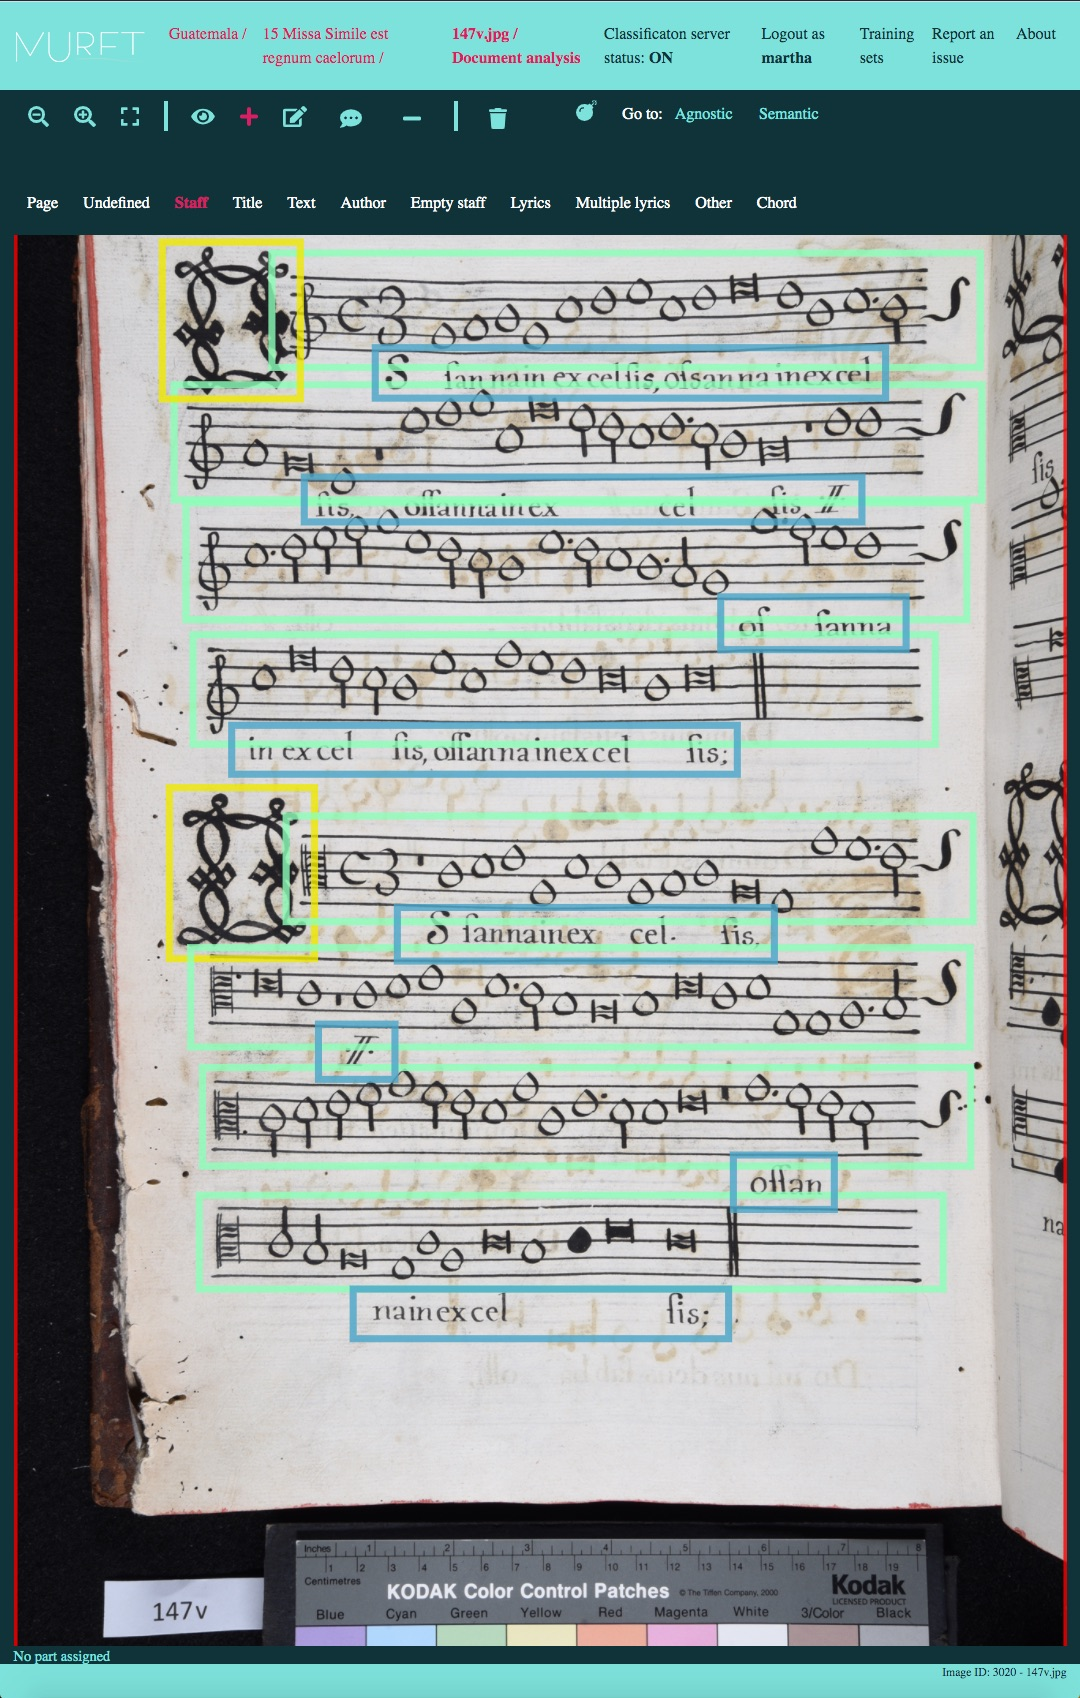 MURET
Guatemala / 15 Missa Simile est regnum caelorum / 147v.jpg / Document analysis Classificaton server status: ON Logout as martha Training sets Report an issue About
Go to: Agnostic Semantic
Page Undefined Staff Title Text Author Empty staff Lyrics Multiple lyrics Other Chord
S ſannain excelſis, oſsannainexcel
ſis, oſſannainex cel ſis
oſ ſanna
in excel ſis, oſſannainexcel ſis;
S ſannainex cel. ſis.
oſſan
nainexcel ſis;
ſis
na
Inches 1 2 3 4 5 6 7 8
1 2 3 4 5 6 7 8 9 10 11 12 13 14 15 16 17 18 19
Centimetres
KODAK Color Control Patches © The Tiffen Company, 2000 Kodak
LICENSED PRODUCT
Blue Cyan Green Yellow Red Magenta White 3/Color Black
147v
No part assigned
Image ID: 3020 - 147v.jpg